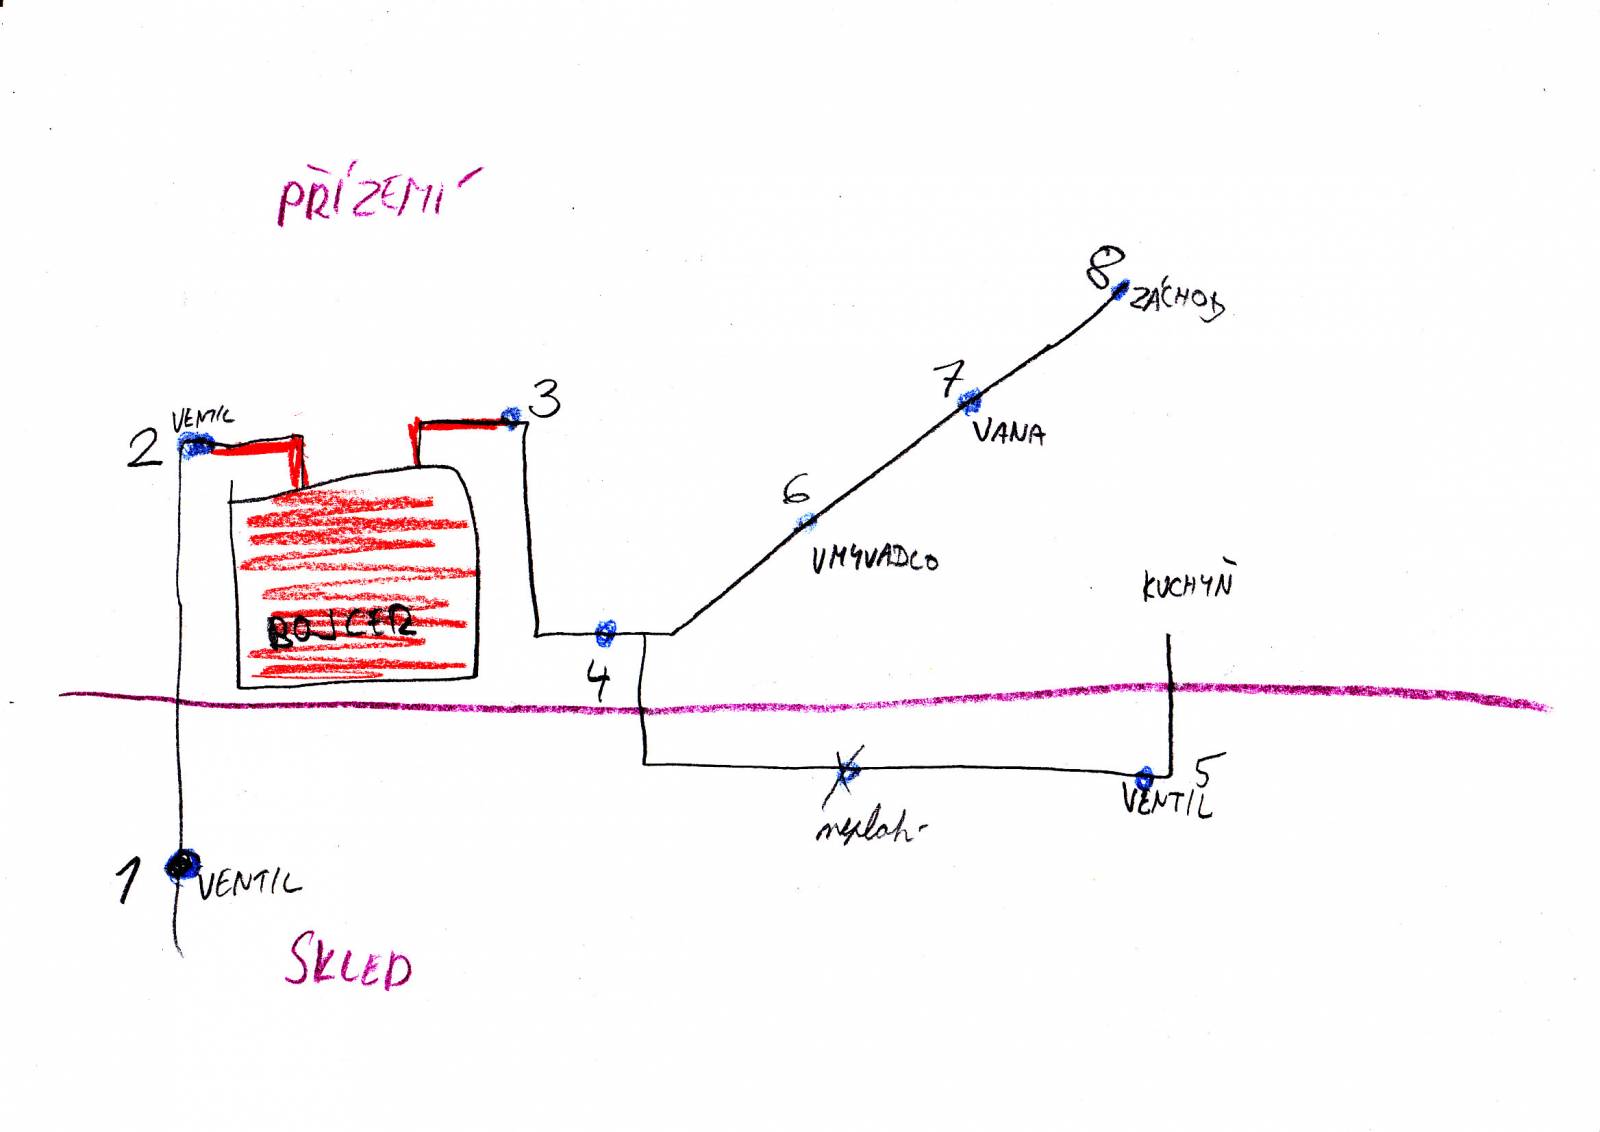 PŘÍZEMÍ
8
ZÁCHOD
7
VANA
3
2
VENTIL
6
UMYVADLO
KUCHYŇ
BOJLER
4
5
VENTIL
1
VENTIL
SKLEP